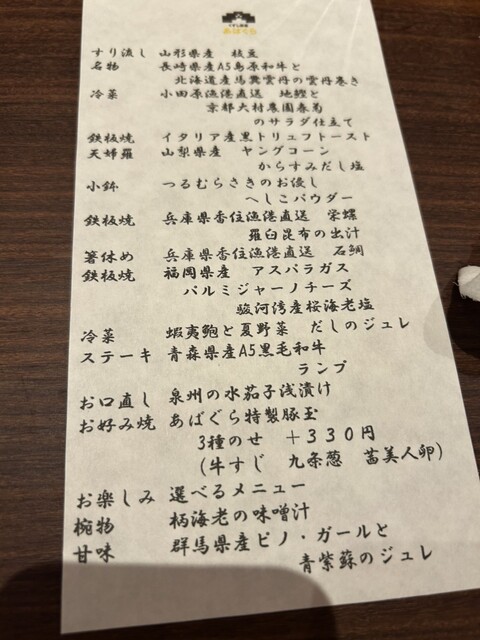 あばぐら
すり流し 山形県産 枝豆
名物 長崎県産A5島原和牛と
北海道産馬糞雲丹の雲丹巻き
冷菜 小田原漁港直送 地鰹と
京都大村農園春菊
のサラダ仕立て
鉄板焼 イタリア産黒トリュフトースト
天婦羅 山梨県産 ヤングコーン
からすみだし塩
小鉢 つるむらさきのお浸し
へしこパウダー
鉄板焼 兵庫県香住漁港直送 栄螺
羅臼昆布の出汁
箸休め 兵庫県香住漁港直送 石鯛
鉄板焼 福岡県産 アスパラガス
パルミジャーノチーズ
駿河湾産桜海老塩
冷菜 蝦夷鮑と夏野菜 だしのジュレ
ステーキ 青森県産A5黒毛和牛
ランプ
お口直し 泉州の水茄子浅漬け
お好み焼 あばぐら特製豚玉
3種のせ +330円
(牛すじ 九条葱 蕾美人卵)
お楽しみ 選べるメニュー
椀物 柄海老の味噌汁
甘味 群馬県産ピノ・ガールと
青紫蘇のジュレ